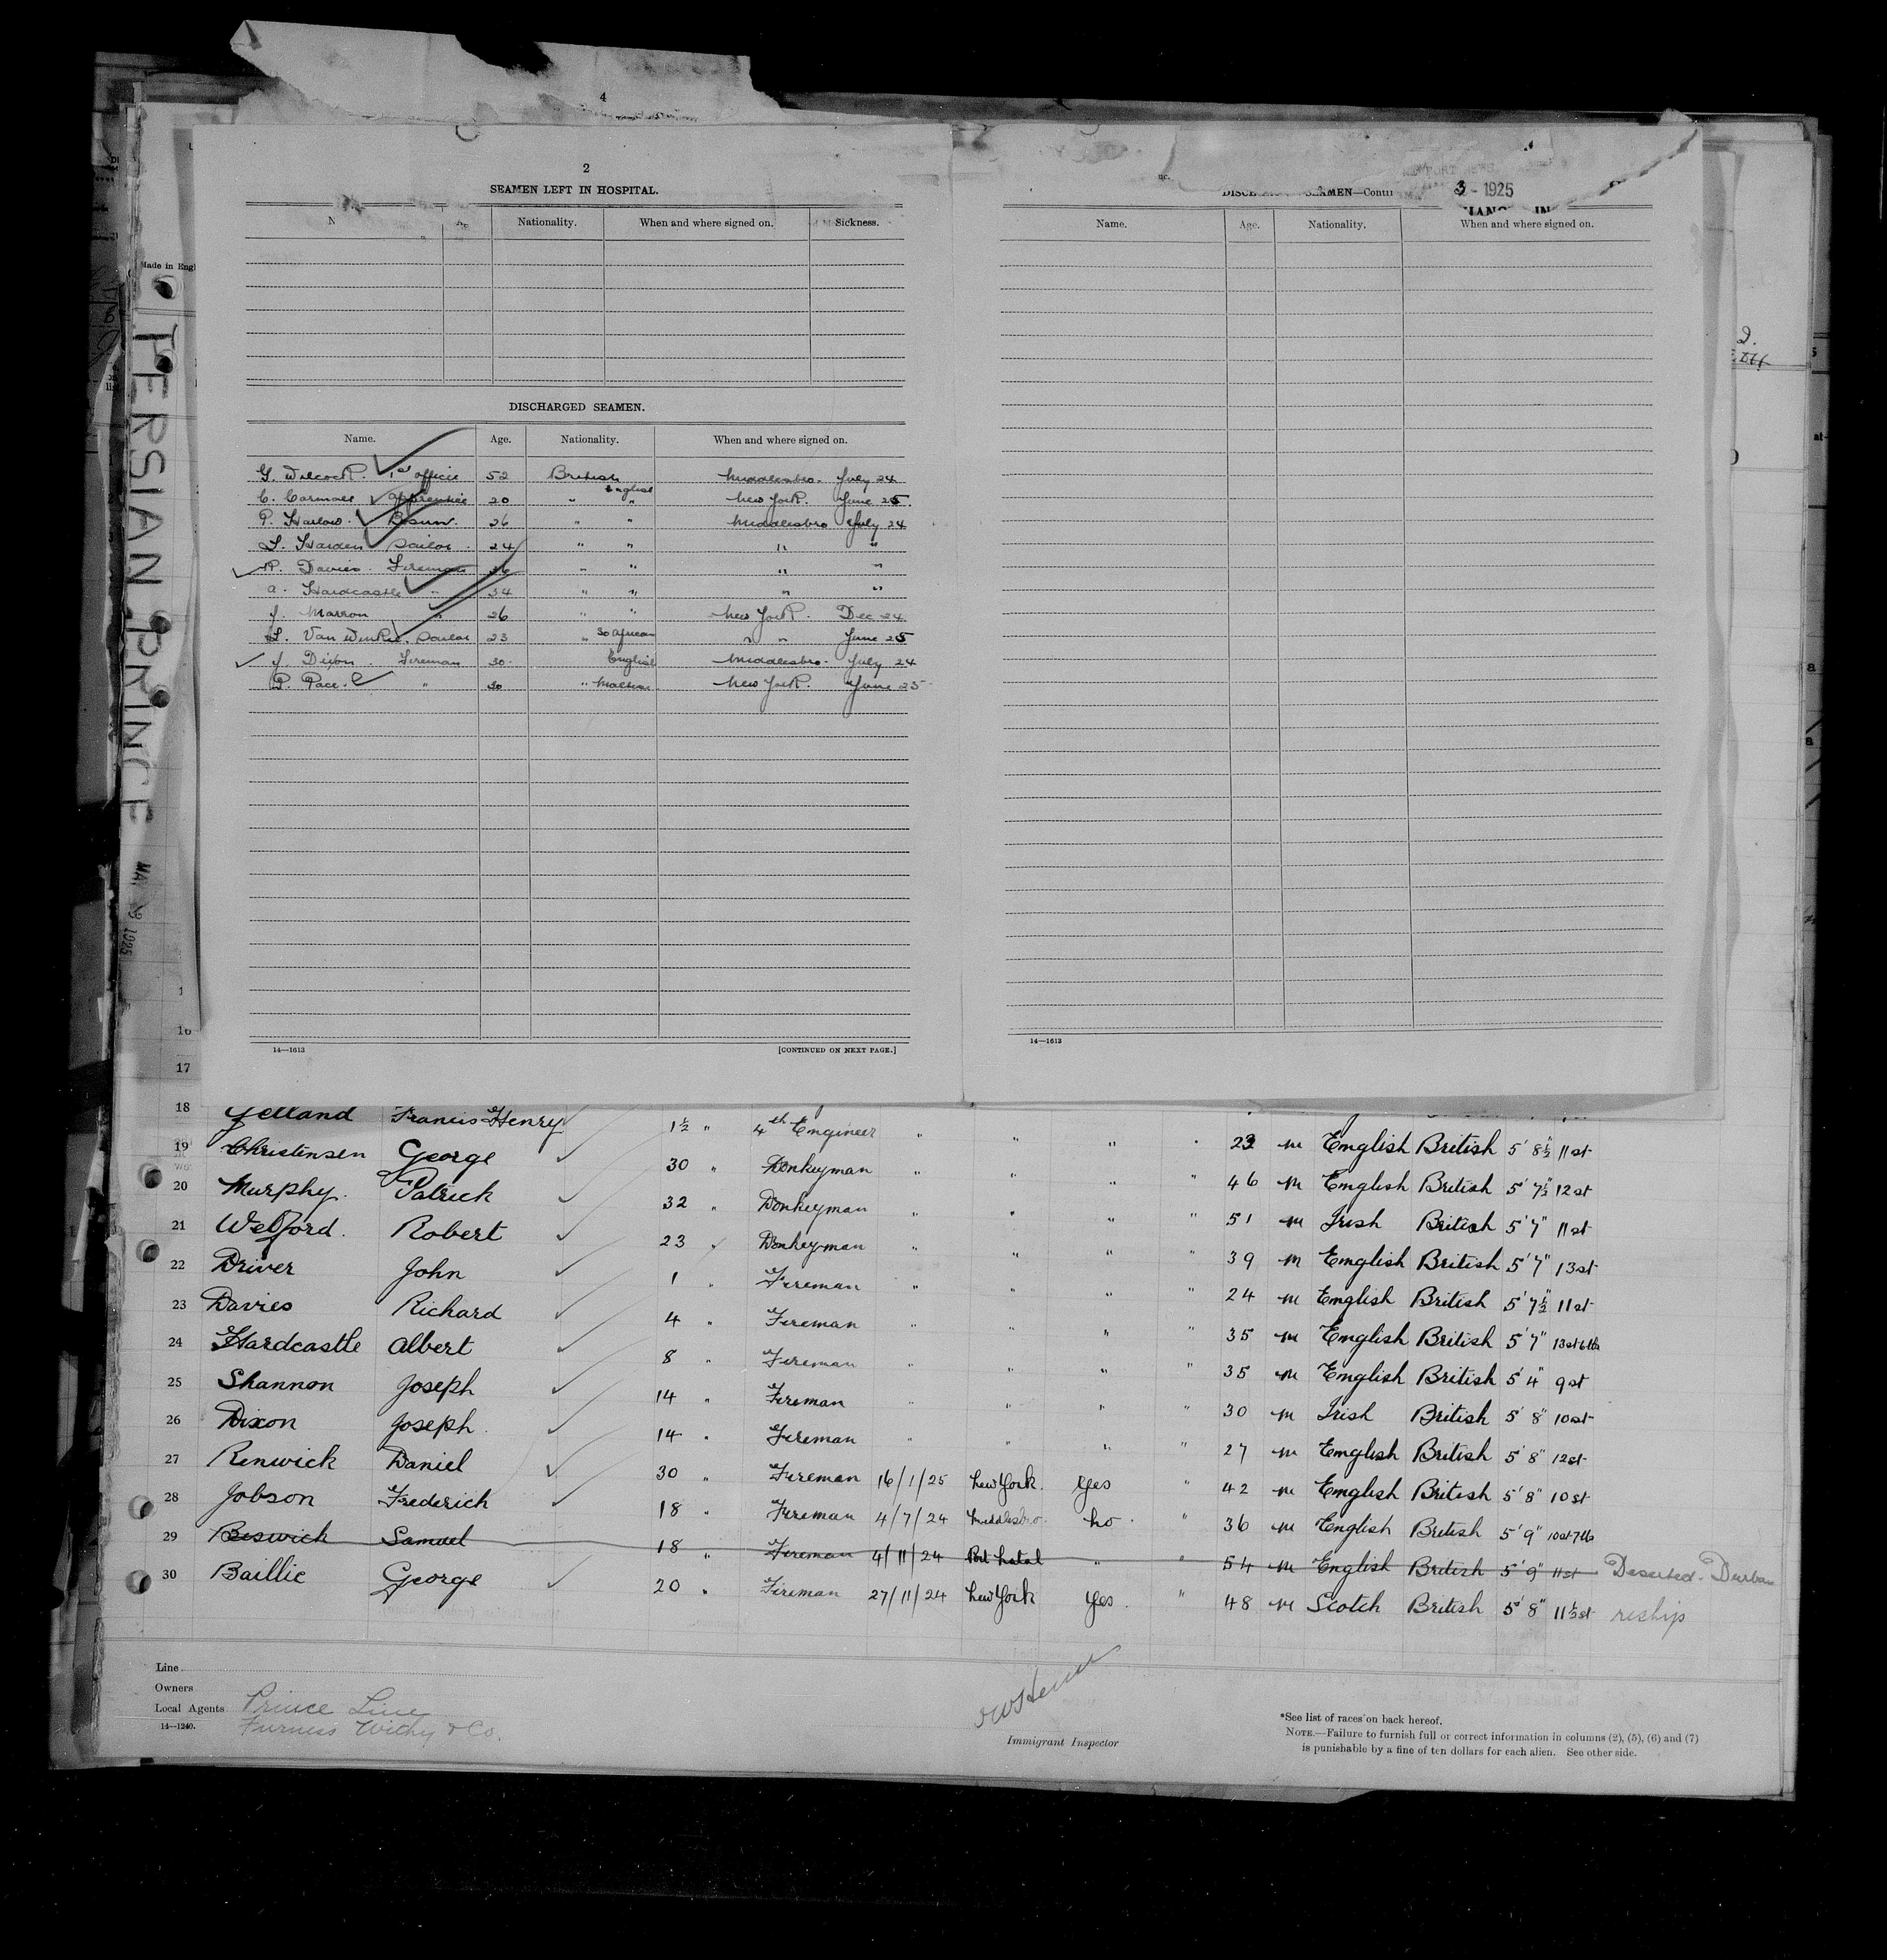 4
2
SEAMEN LEFT IN HOSPITAL.
Nationality. When and where signed on. Sickness.
DISCHARGED SEAMEN.
Name. Age. Nationality. When and where signed on.
G. Wilcock. 1st officer 52 British Middlesbro. July 24
C. Carmall apprentice 20 " English " New York. June 25
P. Harlow. Bosun. 26 " " Middlesbro July 24
L. Harden Sailor. 24 " " " "
R. Davies. Fireman 36 " " " "
A. Hardcastle " 34 " " " "
J. Marron " 26 " " New York. Dec 24
L. Van Sailor 23 " So African " " June 25
J. Dixon. Fireman 30. English Middlesbro. July 24
P. Pace. " 30 " Maltese. New York. June 25
14—1613 [CONTINUED ON NEXT PAGE.]
SEAMEN—Conti
3 - 1925
Name. Age. Nationality. When and where signed on.
14—1613
Made in Engl
PERSIAN PRINCE
1925
16
17
18 Yelland Francis Henry 1½ " 4th Engineer " " " " 23 m English British 5' 8½" 11st
19 Christensen George 30 " Donkeyman " " " " 46 m English British 5' 7½" 12st
20 Murphy. Patrick 32 " Donkeyman " " " " 51 m Irish British 5' 7" 11st
21 Welford. Robert 23 " Donkeyman " " " " 39 m English British 5' 7" 13st
22 Driver John 1 " Fireman " " " " 24 m English British 5' 7½" 11st
23 Davies Richard 4 " Fireman " " " " 35 m English British 5' 7" 13st 6lbs
24 Hardcastle Albert 8 " Fireman " " " " 35 m English British 5' 4" 9st
25 Shannon Joseph 14 " Fireman " " " " 30 m Irish British 5' 8" 10st
26 Dixon Joseph. 14 " Fireman " " " " 27 m English British 5' 8" 12st
27 Renwick Daniel 30 " Fireman 16/1/25 New York. Yes " 42 m English British 5' 8" 10st
28 Jobson Frederich 18 " Fireman 4/7/24 Middlesbro. No. " 36 m English British 5' 9" 10st 7lbs
29 Beswick Samuel 18 " Fireman 4/11/24 Port Natal " " 54 m English British 5' 9" 11st Deserted. Durban
30 Baillie George 20 " Fireman 27/11/24 New York Yes. " 48 m Scotch British 5' 8" 11½st reship
Line
Owners
Local Agents Prince Line
14—1240. Furness Withy & Co.
Immigrant Inspector
*See list of races on back hereof.
NOTE.—Failure to furnish full or correct information in columns (2), (5), (6) and (7)
is punishable by a fine of ten dollars for each alien. See other side.